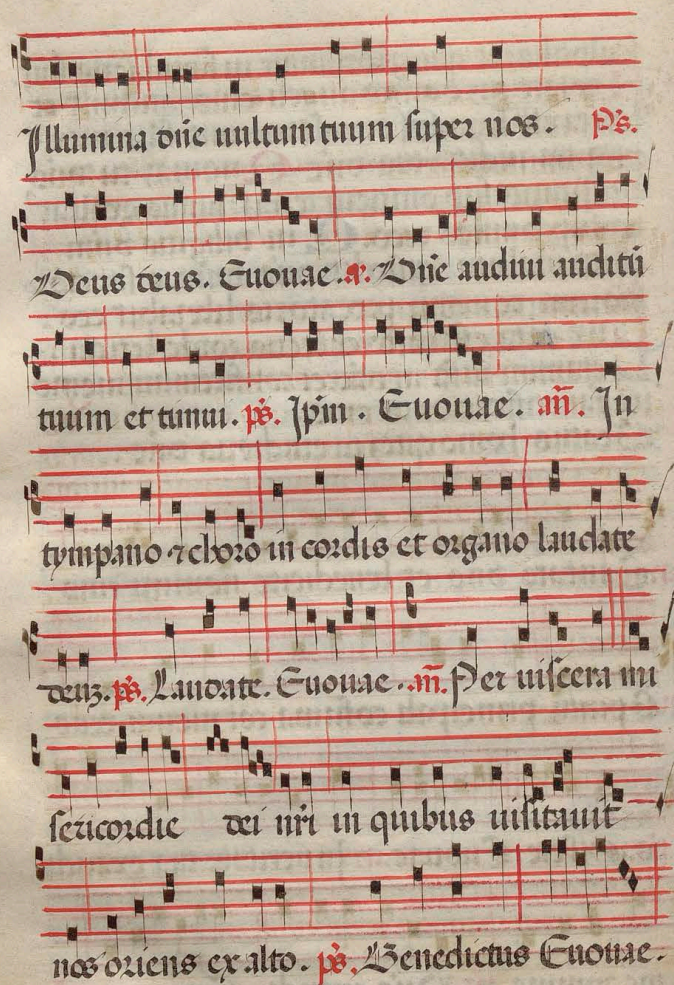 Illumina dñe uultum tuum super nos. Ps.
Deus deus. Euouae. a. Dñe audiui auditũ
tuum et timui. ps. Ip̃m. Euouae. añ. In
tympano ⁊ choro in cordis et organo laudate
deuʒ. ps. Laudate. Euouae. añ. Per uiscera mi
sericordie dei nr̃i in quibus uisitauit
nos oriens ex alto. ps. Benedictus Euouae.